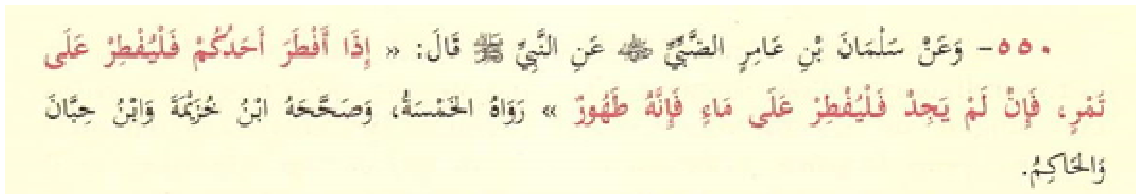 ٥٥٠- وَعَنْ سَلْمَانَ بْنِ عَامِرٍ الضَّبِّيِّ ﵁ عَنِ النَّبِيِّ ﷺ قَالَ: « إِذَا أَفْطَرَ أَحَدُكُمْ فَلْيُفْطِرْ عَلَى
تَمْرٍ، فَإِنْ لَمْ يَجِدْ فَلْيُفْطِرْ عَلَى مَاءٍ فَإِنَّهُ طَهُورٌ » رَوَاهُ الْخَمْسَةُ، وَصَحَّحَهُ ابْنُ خُزَيْمَةَ وَابْنُ حِبَّانَ
وَالْحَاكِمُ.